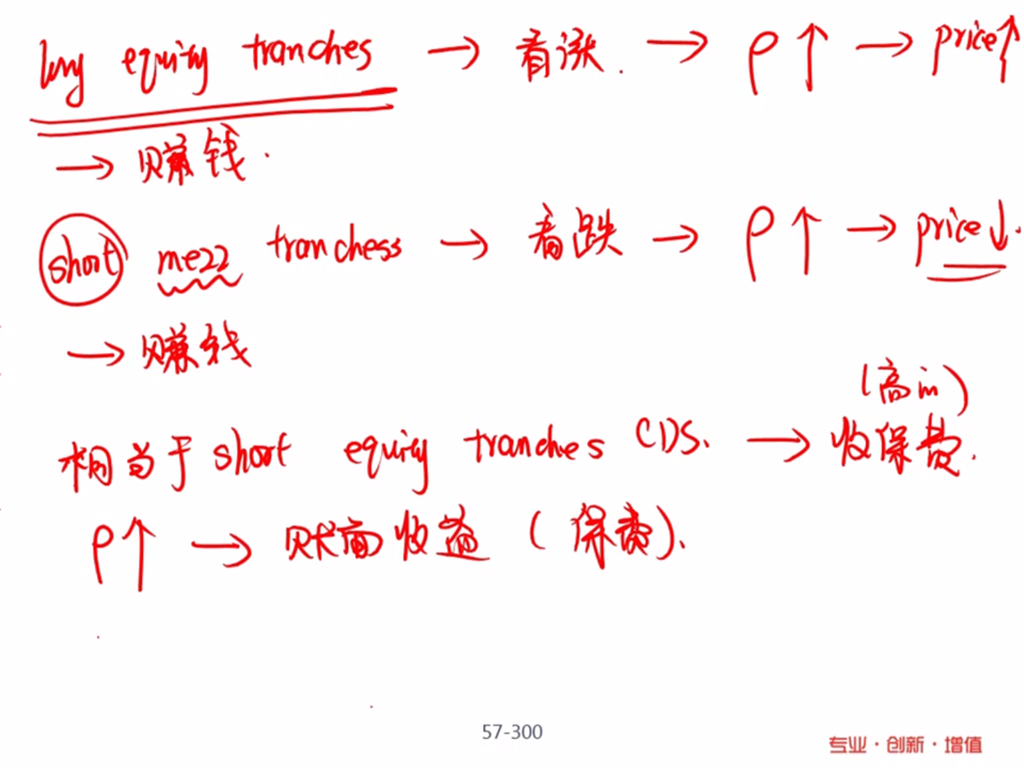 long equity tranches → 看涨. → ρ↑ → price↑
→ 赚钱.
short mezz tranchess → 看跌 → ρ↑ → price↓.
→ 赚钱
(高in)
相当于 short equity tranches CDS. → 收保费.
ρ↑ → 账面收益 (保费).
57-300
专业·创新·增值